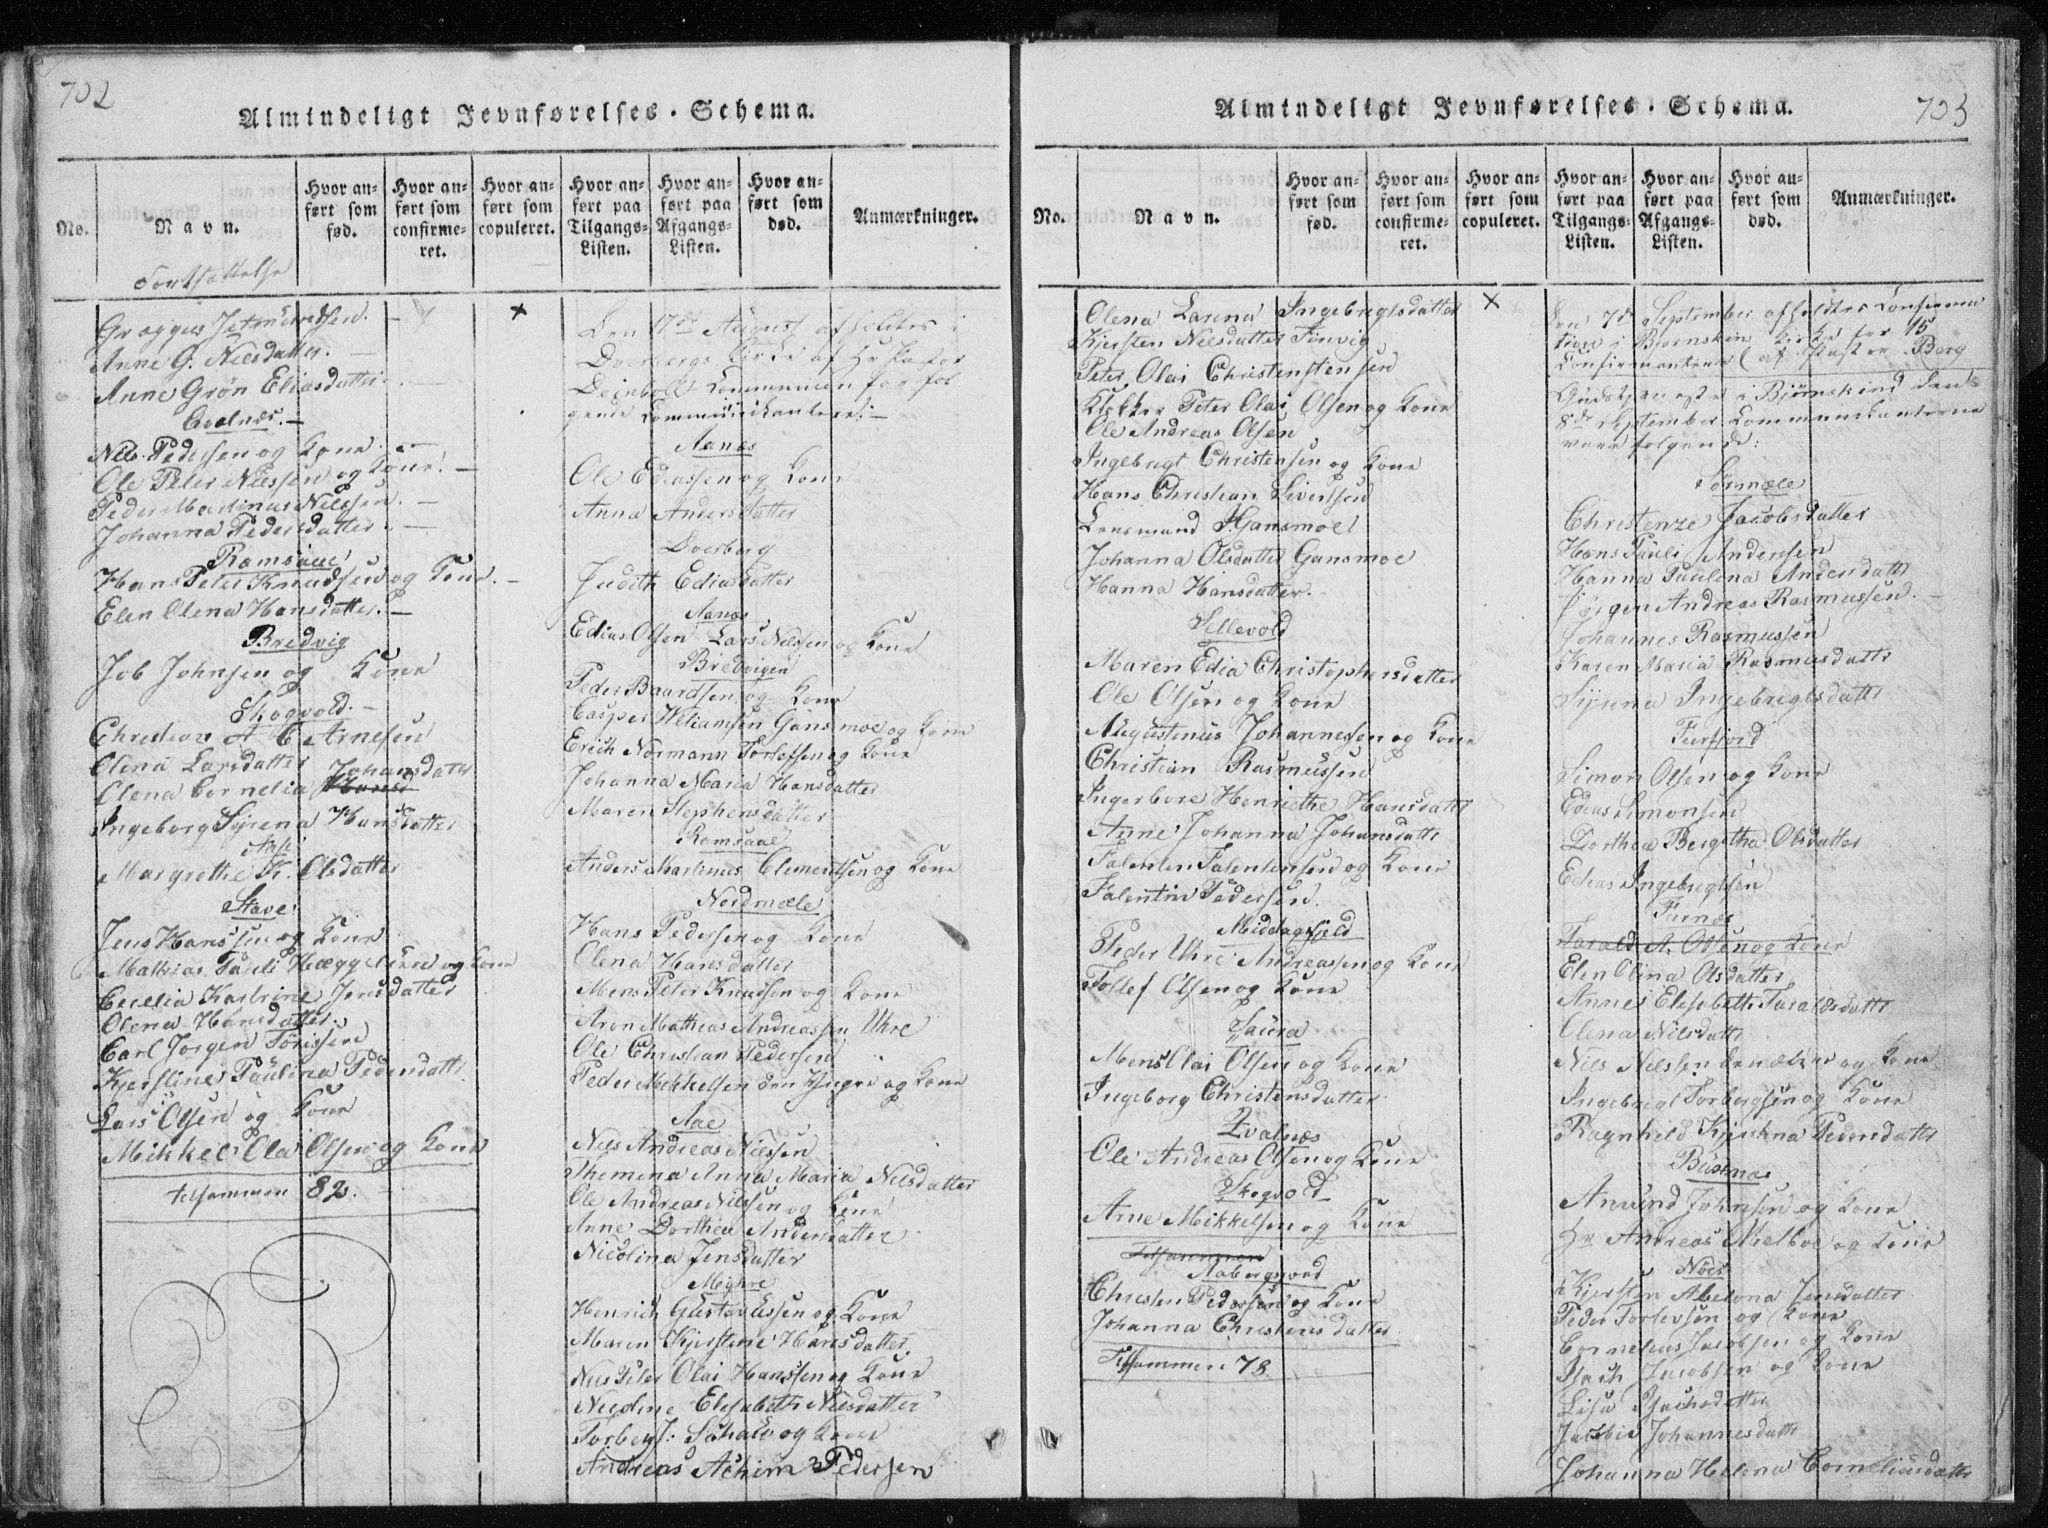 702
Almindeligt Jevnførelses-Schema.
No.
Navn.
Hvor anført som fød.
Hvor anført som confirmeret.
Hvor anført som copuleret.
Hvor anført paa Tilgangs-Listen.
Hvor anført paa Afgangs-Listen.
Hvor anført som død.
Anmærkninger.
Fortsættelse
Anne G. Nielsdatter. —
Anne Grøn Eliasdatter
Nils Pedersen og Kone. —
Ole Peter Nielssen og Kone. —
Peder Martinus Nilssen. —
Johanna Pedersdatter. —
Ramsaae
Hans Peter Knudsen og Kone. —
Elen Olena Hansdatter. —
Bredvig
Job Johnsen og Kone
Skogvold. —
Christian A C Arnesen
Olena Larsdatter
Olena Cornelia Johansdatter
Ingeborg Sÿrena Hansdatter
Aase
Margrethe K. Olsdatter
Stave
Jens Hanssen og Kone
Mathias Pauli og Kone
Cecelia Katrine Jensdatter
Olena Hansdatter.
Carl Jørgen
Kjerstine Paulina Pedersdatter
Lars Olsen og Kone
Mikkel Olai Olsen og Kone
tilsammen 82. —
Den 17de August afholdtes i
Dverbergs Kirke af Hr Pastor
Deinboll Communion for føl-
gende Communikantere: —
Aanes
Ole Ediassen og Kone
Anna Andersdatter
Dverberg
Judith Ediasdatter
Aanes
Edias Olsen Lars Nilssen og Kone
Bredvigen
Peder Baardsen og Kone
Casper Wiliamsen Gansmoe og Kone
Erich Normann Torlefsen og Kone
Johanna Maria Hansdatter
Maren Stephensdatter
Ramsaae
Anders Martinus Clementsen og Kone
Nordmæle
Hans Pedersen og Kone
Olena Hansdatter
Mens Peter Knudsen og Kone
Aron Mathias Andreassen Uhre
Ole Christian Pedersen
Peder Mikkelsen den Yngre og Kone
Aae
Nils Andreas Nielssen
Anna Maria Nilsdatter
Ole Andreas Nilssen og Kone
Anne Dorthea Andersdatter
Nicolina Jensdatter
Myhre
Henrich Gustavussen og Kone
Maren Kjerstine Hansdatter
Nils Peter Olai Hanssen og Kone
Elisabeth Nilsdatter
Torberg J. Schalv og Kone
Andreas Achim Pedersen
703
Almindeligt Jevnførelses-Schema.
No.
Navn.
Hvor anført som fød.
Hvor anført som confirmeret.
Hvor anført som copuleret.
Hvor anført paa Tilgangs-Listen.
Hvor anført paa Afgangs-Listen.
Hvor anført som død.
Anmærkninger.
Olena Larena Ingebrigtsdatter
Kjersten Nielsdatter Finvig
Peter Olai Christenstensen
Klokker Peter Olai Olsen og Kone
Ole Andreas Olsen
Ingebrigt Christensen og Kone
Hans Christian Sivertsen
Lensmand Gansmoe
Johanna Olsdatter Gansmoe
Hanna Hansdatter.
Sellevold
Maren Edia Christophersdatter
Ole Olsen og Kone
Augustinus Johannessen og Kone
Christian Rasmussen
Ingerbore Henriethe Hansdatter
Anne Johanna Johansdatter
Falenten Falentensen og Kone
Falentin Pedersen.
Middagsfjeld
Peder Uhre Andreassen og Kone
Tollef Olsen og Kone
Saura
Mens Olai Olsen og Kone
Ingeborg Christensdatter
Qvalnæs
Ole Andreas Olsen og Kone
Skogvold
Arne Mikkelsen og Kone
Tilsammen
Aabergsjord
Christen Pedersen og Kone
Johanna Christensdatter
Tilsammen 78.
Den 7de September afholdtes Confirma
tion i Bjørnskin Kirke for 15
Confirmantene (af Pastor Berg
Gudstjeneste i Bjørnskind den
8de September Communikanterne
vare følgende:
Sørmæle
Christenze Jacobsdatter
Hans Pauli Andersen
Hanna Paulina Andersdatter
Jørgen Andreas Rasmussen. —
Johannes Rasmussen
Karen Maria Rasmusdatter
Syrena Ingebrigtsdatter
Furfjord
Simon Olsen og Kone
Edias Simonsen
Dorthea Bergitha Olsdatter
Edias Ingebrigtsen
Farald A. Olsen og Kone
Elen Olina Olsdatter
Anne Elisabeth Faraldsdatter
Olena Nilsdatter
Nils Nilssen den ældre og Kone
Ingebrigt Torbergsen og Kone
Ragnhild Kjerstina Pedersdatter
Büsnæs
Anund Johnsen og Kone
Hr Andreas Mielboe og Kone
Nøss
Kjersten Abelona Jensdatter
Peder Torlevsen og Kone
Cornelius Jacobsen og Kone
Isach Jacobsen og Kone
Lisa Isachsdatter
Jacobia Johannesdatter
Johanna Helena Corneliusdatter